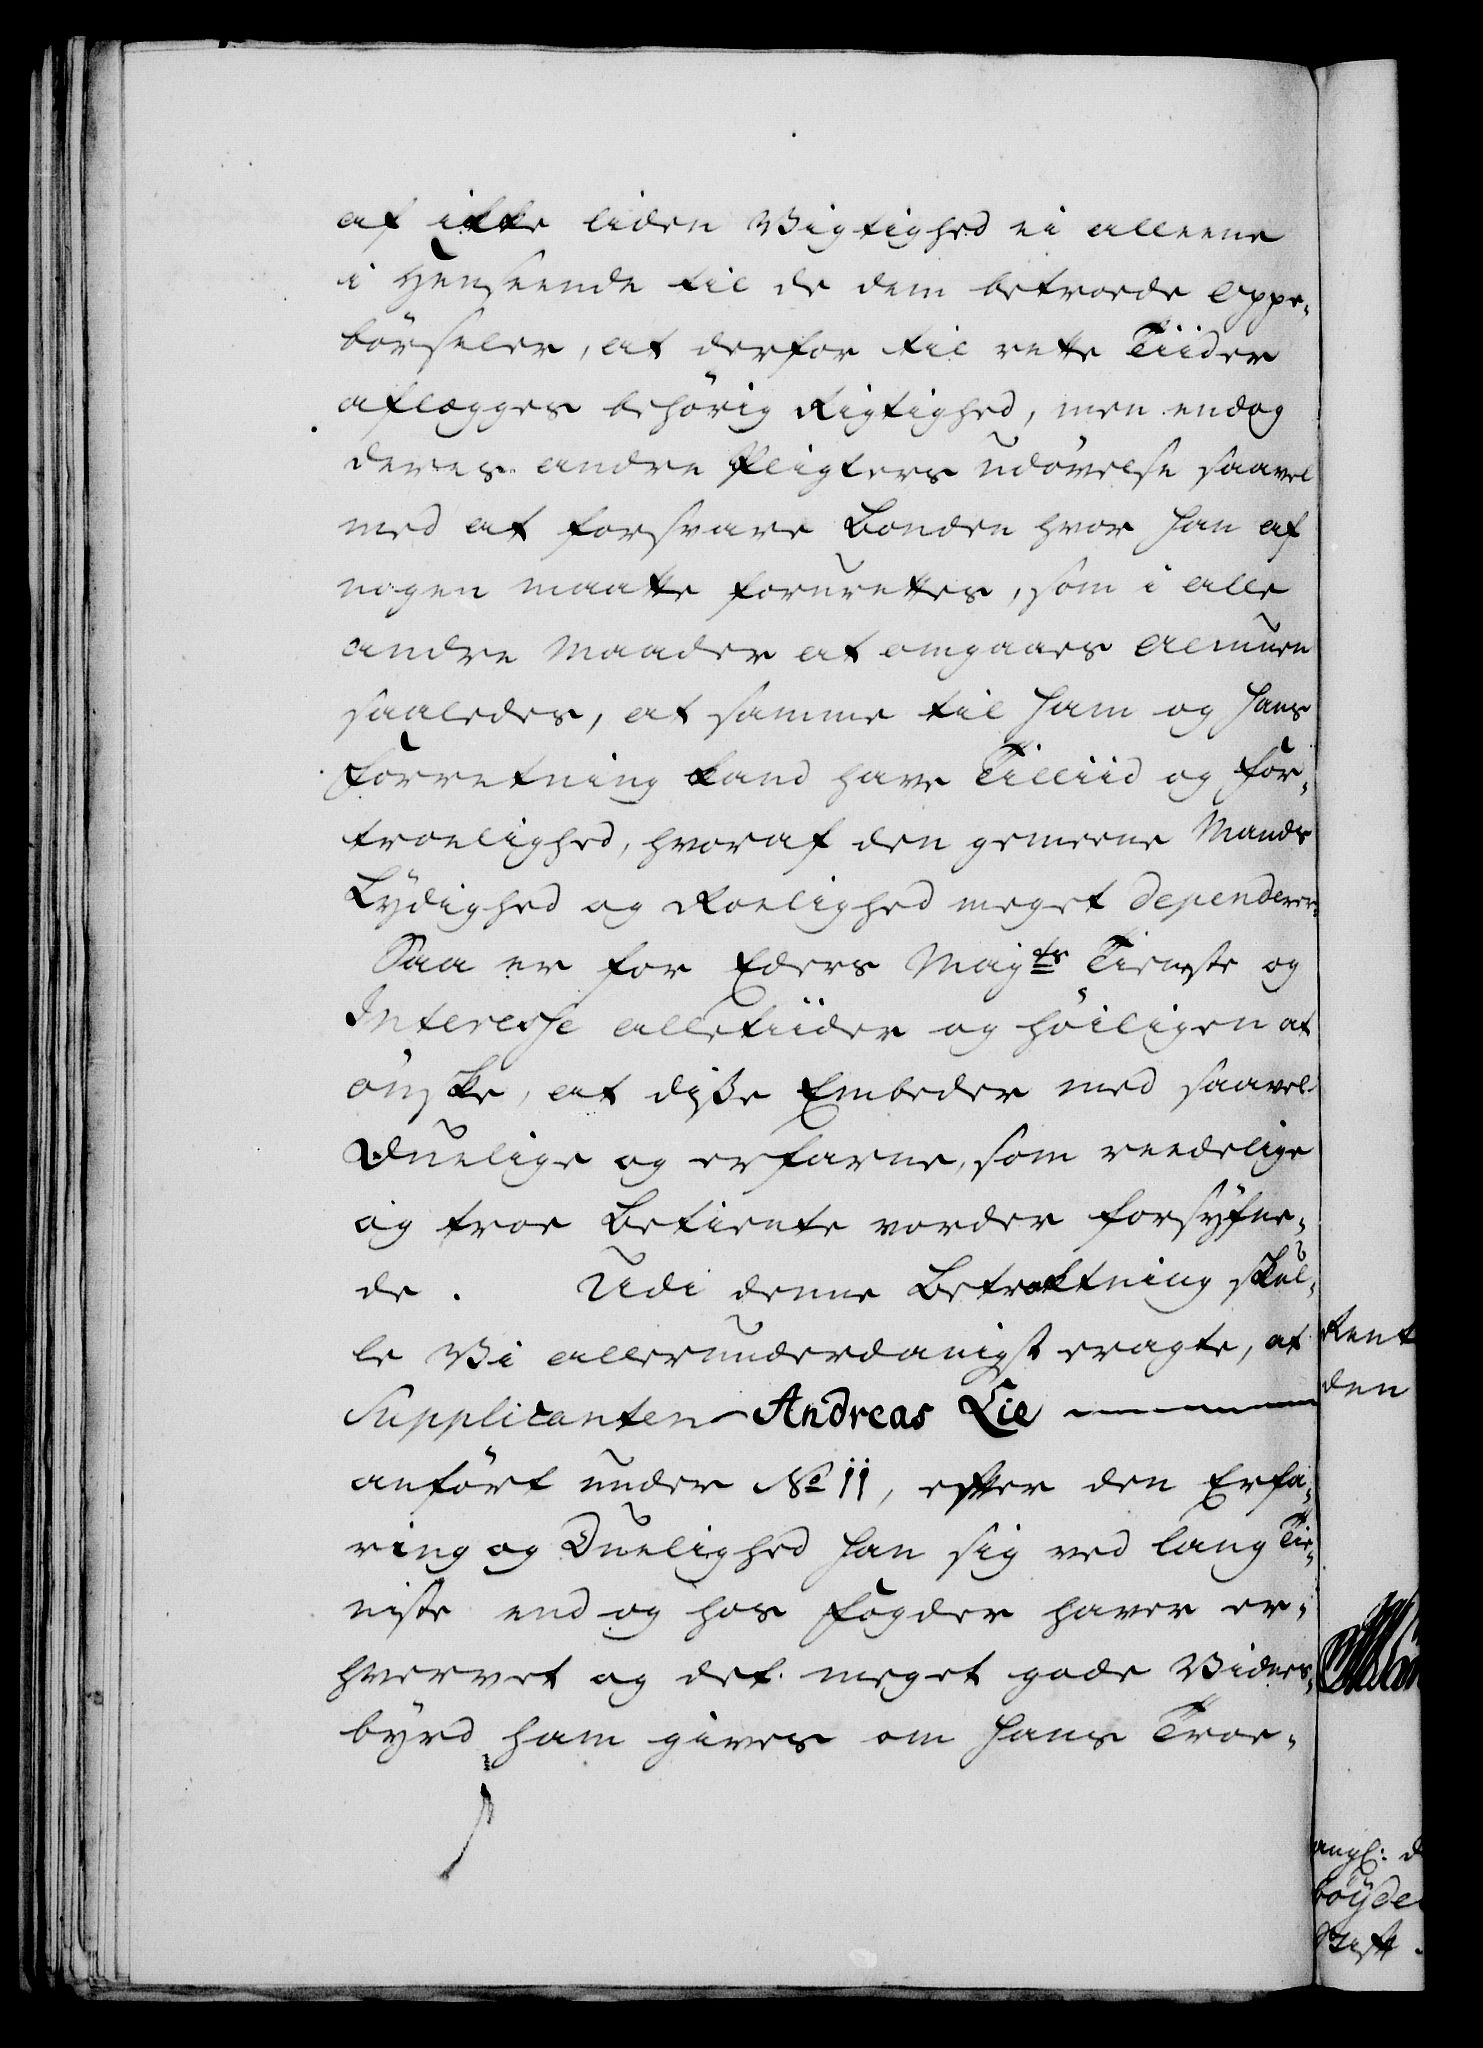 af ikke liden Vigtighed ei alleene
i Henseende til de dem betroede Oppe-
börseler, at derfor til rette Tiider
aflægges behörig Rigtighed, men endog
deres andre Pligters Udövelse saavel
med at forsvare Bonden hvor han af
nogen maatte forurettes, som i alle
andre Maader at omgaaes Almuen
saaledes, at samme til ham og hans
Forretning kand have Tilliid og For-
troelighed, hvoraf den gemeene Mands
Lydighed og Roelighed meget dependerer.
Saa er for Eders Mayts Tieneste og
Interesse alletiider og höiligen at
önske, at disse Embeder med saavel
Duelige og erfarne, som reedelige
og troe Betiente vorder forsÿne-
de. Udi denne Betraktning skul-
le Vi allerunderdanigst eragte, at
Supplicanten Andreas Lie
anfört under No 11, efter den Erfa-
ring og Duelighed han sig ved lang Tie-
niste end og hos Fogder haver er-
hvervet og det meget gode Vidnes-
byrd ham gives om hans Troe-
Rent
den
böyde